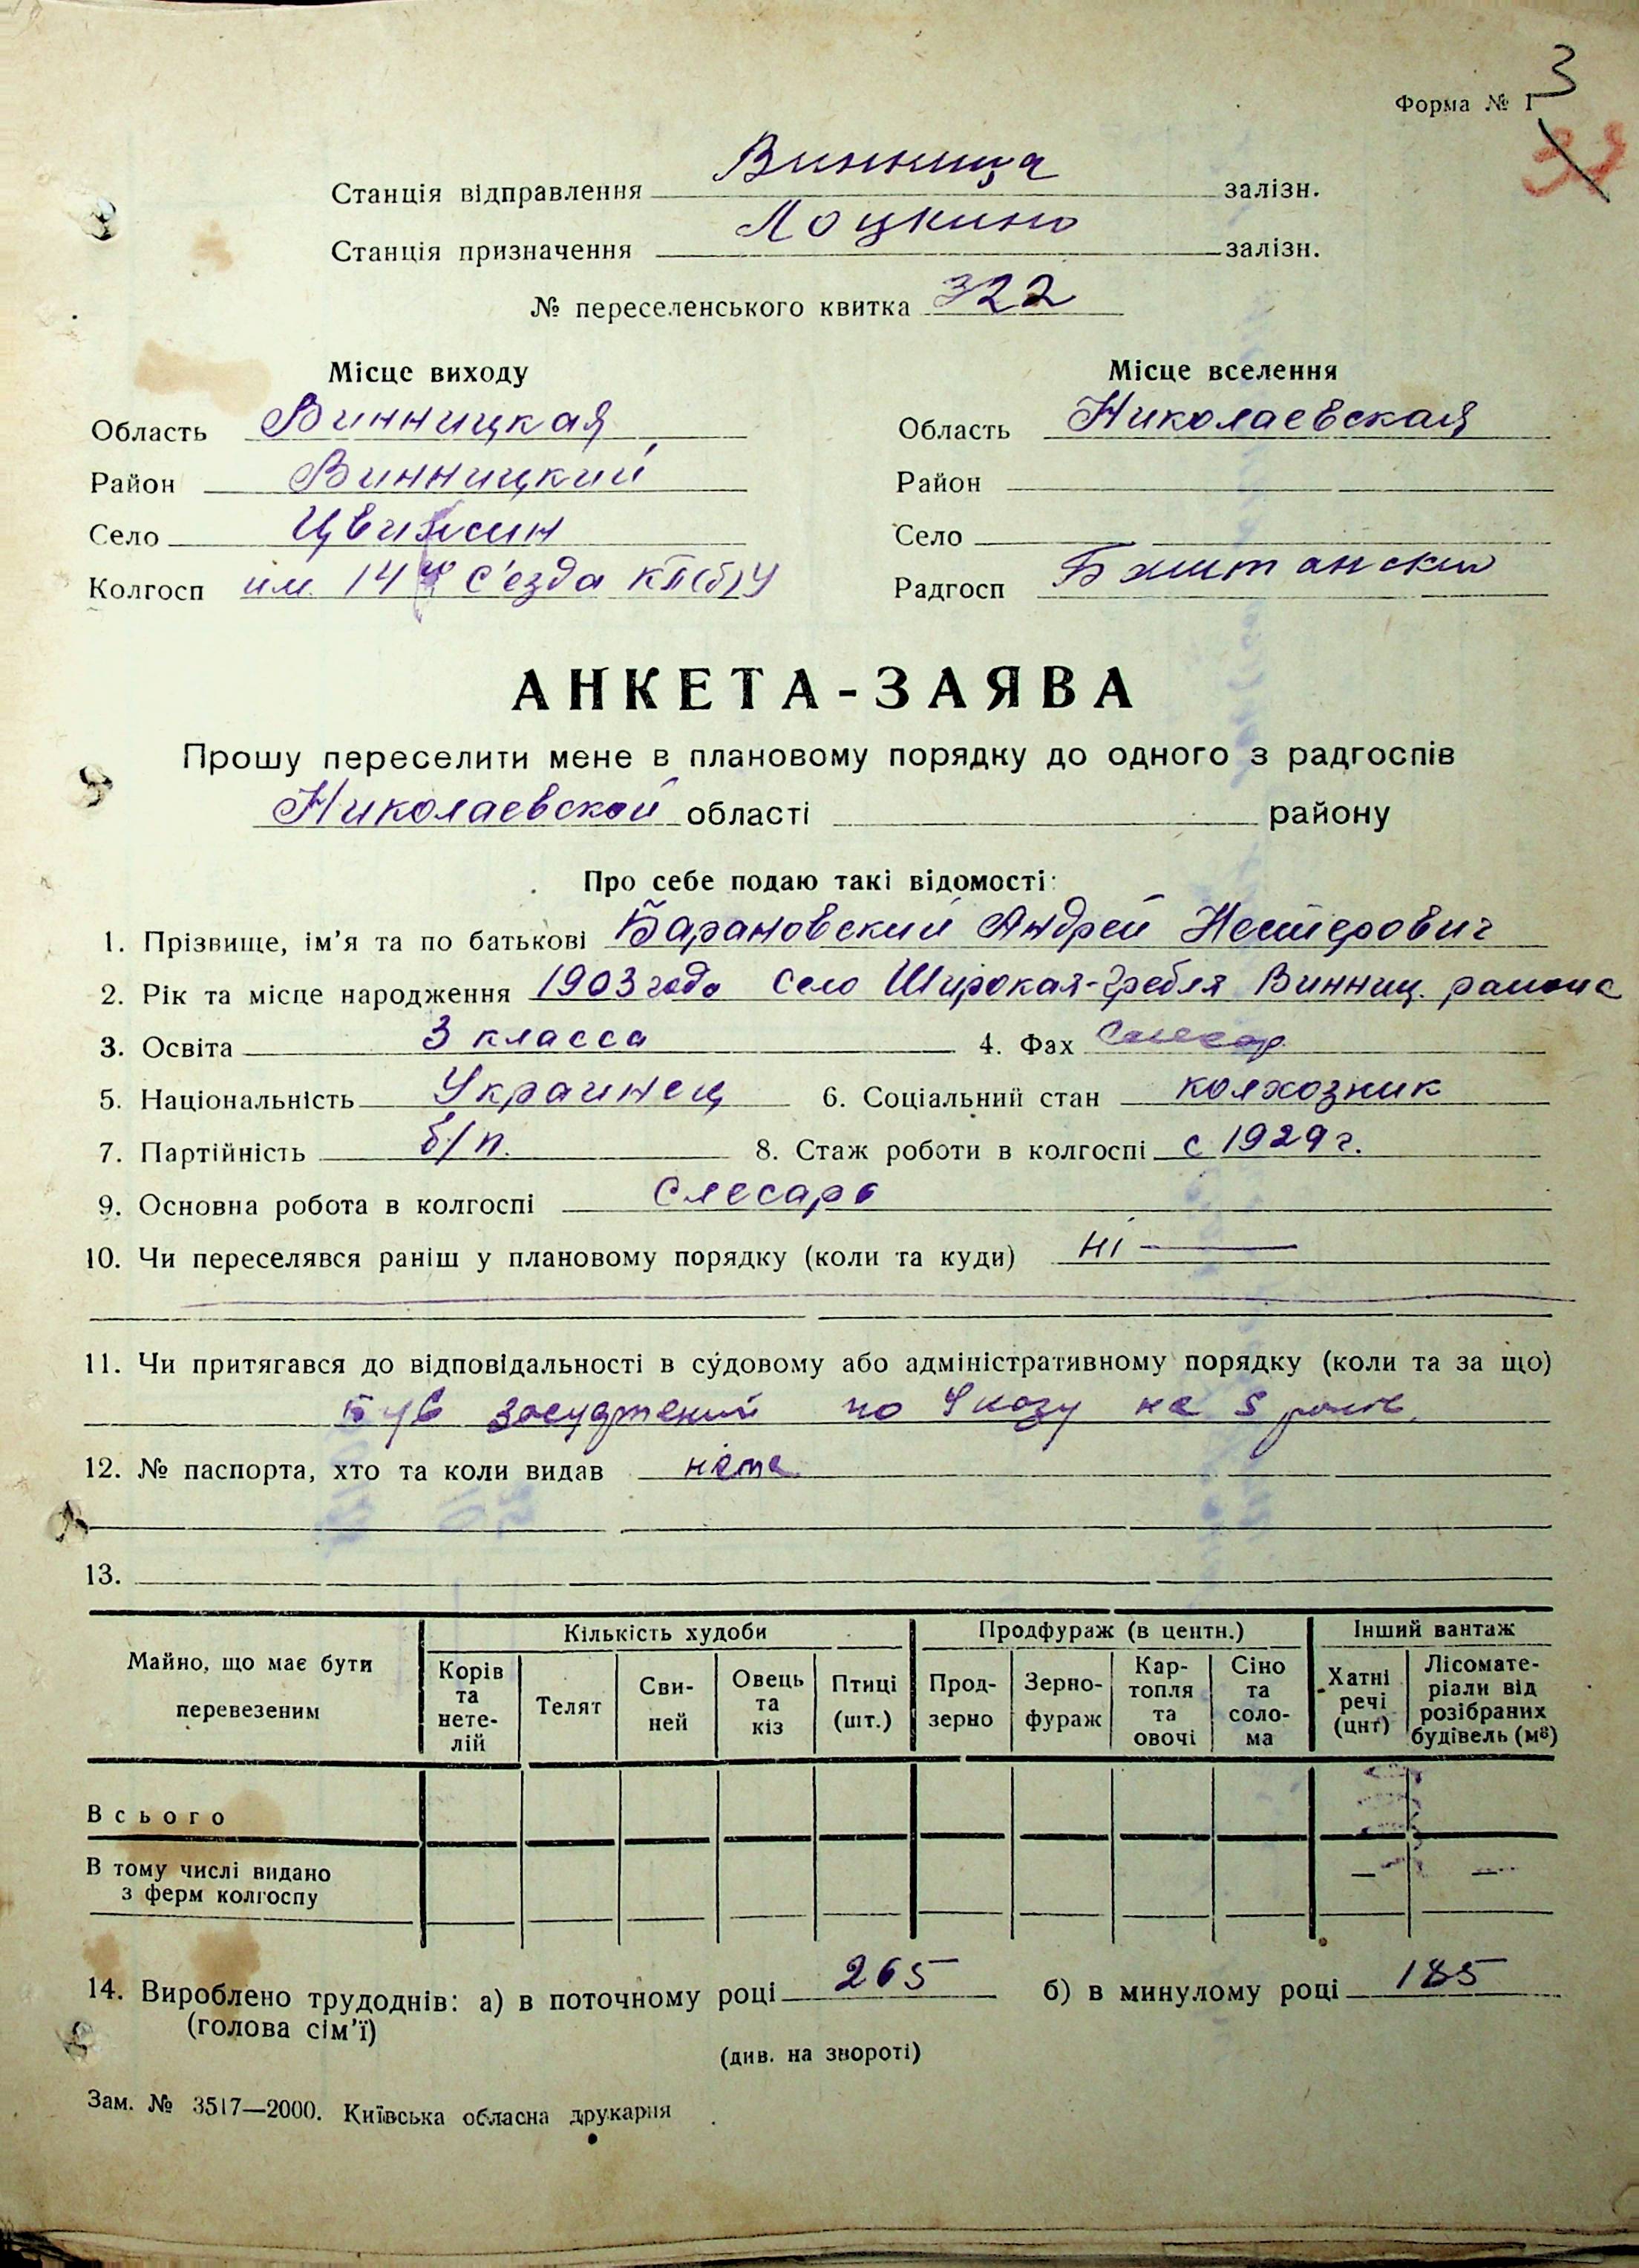 3
Форма № 1
32
Станція відправлення Винница залізн.
Станція призначення Лоцкино залізн.
№ переселенського квитка 322
Місце виходу Місце вселення
Область Винницкая Область Николаевская
Район Винницкий Район
Село Село
Колгосп им. 14го с'езда КП(б)У Радгосп
АНКЕТА-ЗАЯВА
Прошу переселити мене в плановому порядку до одного з радгоспів
Николаевской області району
Про себе подаю такі відомості:
1. Прізвище, ім'я та по батькові Барановский Андрей Нестерович
2. Рік та місце народження 1903 года Село Широкая-Гребля Винниц. района
3. Освіта 3 класса 4. Фах Слесар
5. Національність Украинец 6. Соціальний стан колхозник
7. Партійність б/п. 8. Стаж роботи в колгоспі с 1929 г.
9. Основна робота в колгоспі Слесарь
10. Чи переселявся раніш у плановому порядку (коли та куди) ні
11. Чи притягався до відповідальності в судовому або адміністративному порядку (коли та за що)
Був засуджений по Указу на 5 років.
12. № паспорта, хто та коли видав нема
13.
Майно, що має бути перевезеним
Кількість худоби Продфураж (в центн.) Інший вантаж
Корів та нетелій Телят Свиней Овець та кіз Птиці (шт.) Продзерно Зернофураж Картопля та овочі Сіно та солома Хатні речі (цнт) Лісоматеріали від розібраних будівель (м³)
Всього
В тому числі видано
з ферм колгоспу — —
14. Вироблено трудоднів: а) в поточному році 265 б) в минулому році 185
(голова сім'ї)
(див. на звороті)
Зам. № 3517—2000. Київська обласна друкарня